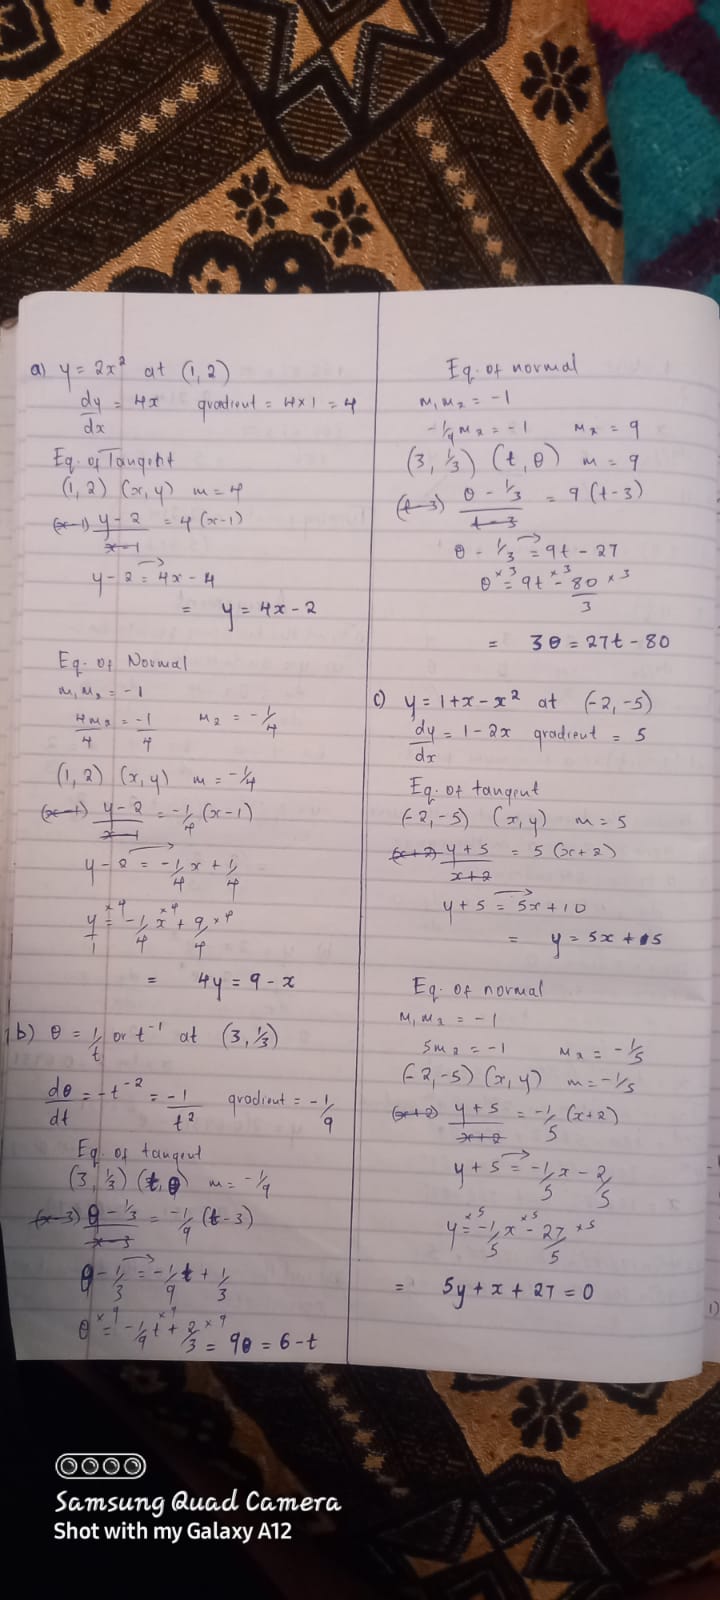 a) y = 2x² at (1, 2)
dy/dx = 4x gradient = 4×1 = 4
Eq. of Tangent
(1, 2) (x, y) m = 4
(x-1) y-2/x-1 = 4 (x-1)
y - 2 = 4x - 4
= y = 4x - 2
Eq. of Normal
m₁m₂ = -1
4m₂/4 = -1/4 m₂ = -1/4
(1, 2) (x, y) m = -1/4
(x-1) y-2/x-1 = -1/4 (x-1)
y - 2 = -1/4 x + 1/4
y/1 ×4 = -1/4 x ×4 + 9/4 ×4
= 4y = 9 - x
b) θ = 1/t or t⁻¹ at (3, 1/3)
dθ/dt = -t⁻² = -1/t² gradient = -1/9
Eq. of tangent
(3, 1/3) (t, θ) m = -1/9
(x-3) θ - 1/3/x-3 = -1/9 (t-3)
θ - 1/3 = -1/9 t + 1/3
θ ×9 = -1/9 t ×9 + 2/3 ×9 = 9θ = 6 - t
Eq. of normal
m₁m₂ = -1
-1/9 m₂ = -1 m₂ = 9
(3, 1/3) (t, θ) m = 9
(t-3) θ - 1/3/t-3 = 9 (t-3)
θ - 1/3 = 9t - 27
θ ×3 = 9t ×3 - 80/3 ×3
= 3θ = 27t - 80
c) y = 1 + x - x² at (-2, -5)
dy/dx = 1 - 2x gradient = 5
Eq. of tangent
(-2, -5) (x, y) m = 5
(x+2) y+5/x+2 = 5 (x+2)
y + 5 = 5x + 10
= y = 5x + 5
Eq. of normal
m₁m₂ = -1
5m₂ = -1 m₂ = -1/5
(-2, -5) (x, y) m = -1/5
(x+2) y+5/x+2 = -1/5 (x+2)
y + 5 = -1/5 x - 2/5
y ×5 = -1/5 x ×5 - 27/5 ×5
= 5y + x + 27 = 0
1)
Samsung Quad Camera
Shot with my Galaxy A12